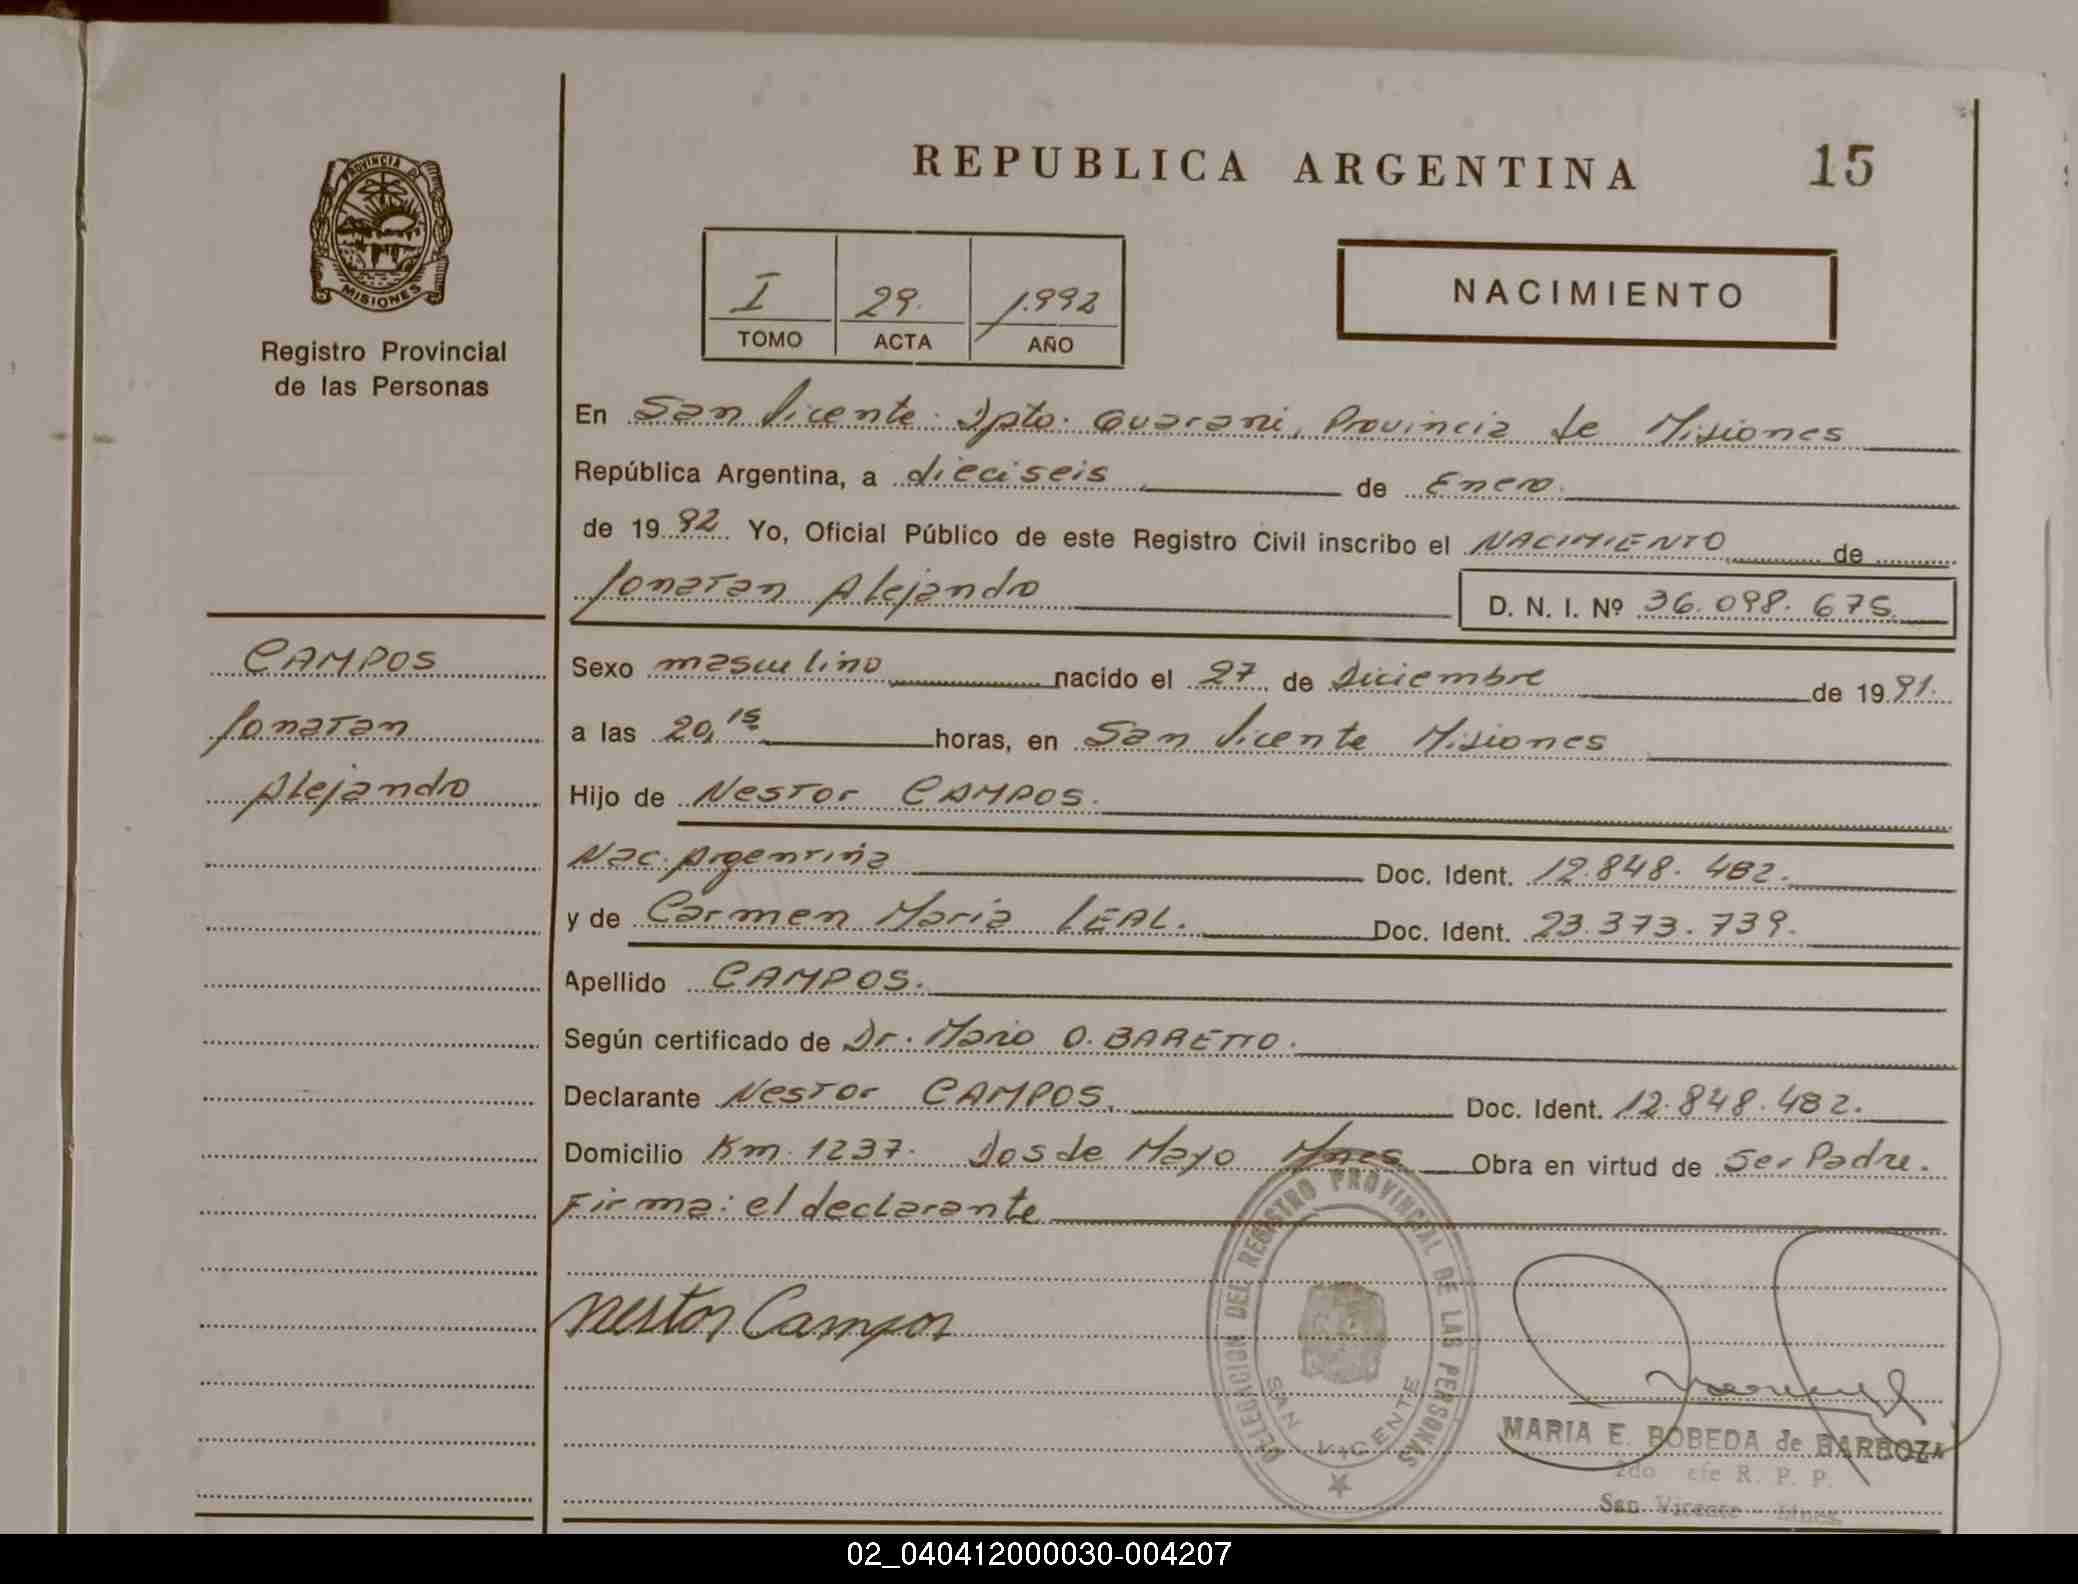 REPUBLICA ARGENTINA 15
PROVINCIA DE
MISIONES
Registro Provincial
de las Personas
I 29. 1.992
TOMO ACTA AÑO
NACIMIENTO
En San Vicente. Dpto. Guarani, Provincia de Misiones
República Argentina, a dieciseis de Enero.
de 1992 Yo, Oficial Público de este Registro Civil inscribo el NACIMIENTO de
Jonatan Alejandro D. N. I. Nº 36.098.675
CAMPOS
Jonatan
Alejandro
Sexo masculino nacido el 27 de Diciembre de 1991.
a las 20,15 horas, en San Vicente Misiones
Hijo de Nestor CAMPOS.
Nac. Argentina Doc. Ident. 12.848.482.
y de Carmen Maria LEAL. Doc. Ident. 23.373.739.
Apellido CAMPOS.
Según certificado de Dr. Mario O. BARETTO.
Declarante Nestor CAMPOS. Doc. Ident. 12.848.482.
Domicilio Km. 1237. Dos de Mayo Mnes. Obra en virtud de Ser Padre.
Firma: el declarante
Nestor Campos
DELEGACION DEL REGISTRO PROVINCIAL DE LAS PERSONAS
SAN VICENTE
MARIA E. BOBEDA de BARBOZA
2do R. P. P.
San Vicente - Mnes.
02_040412000030-004207